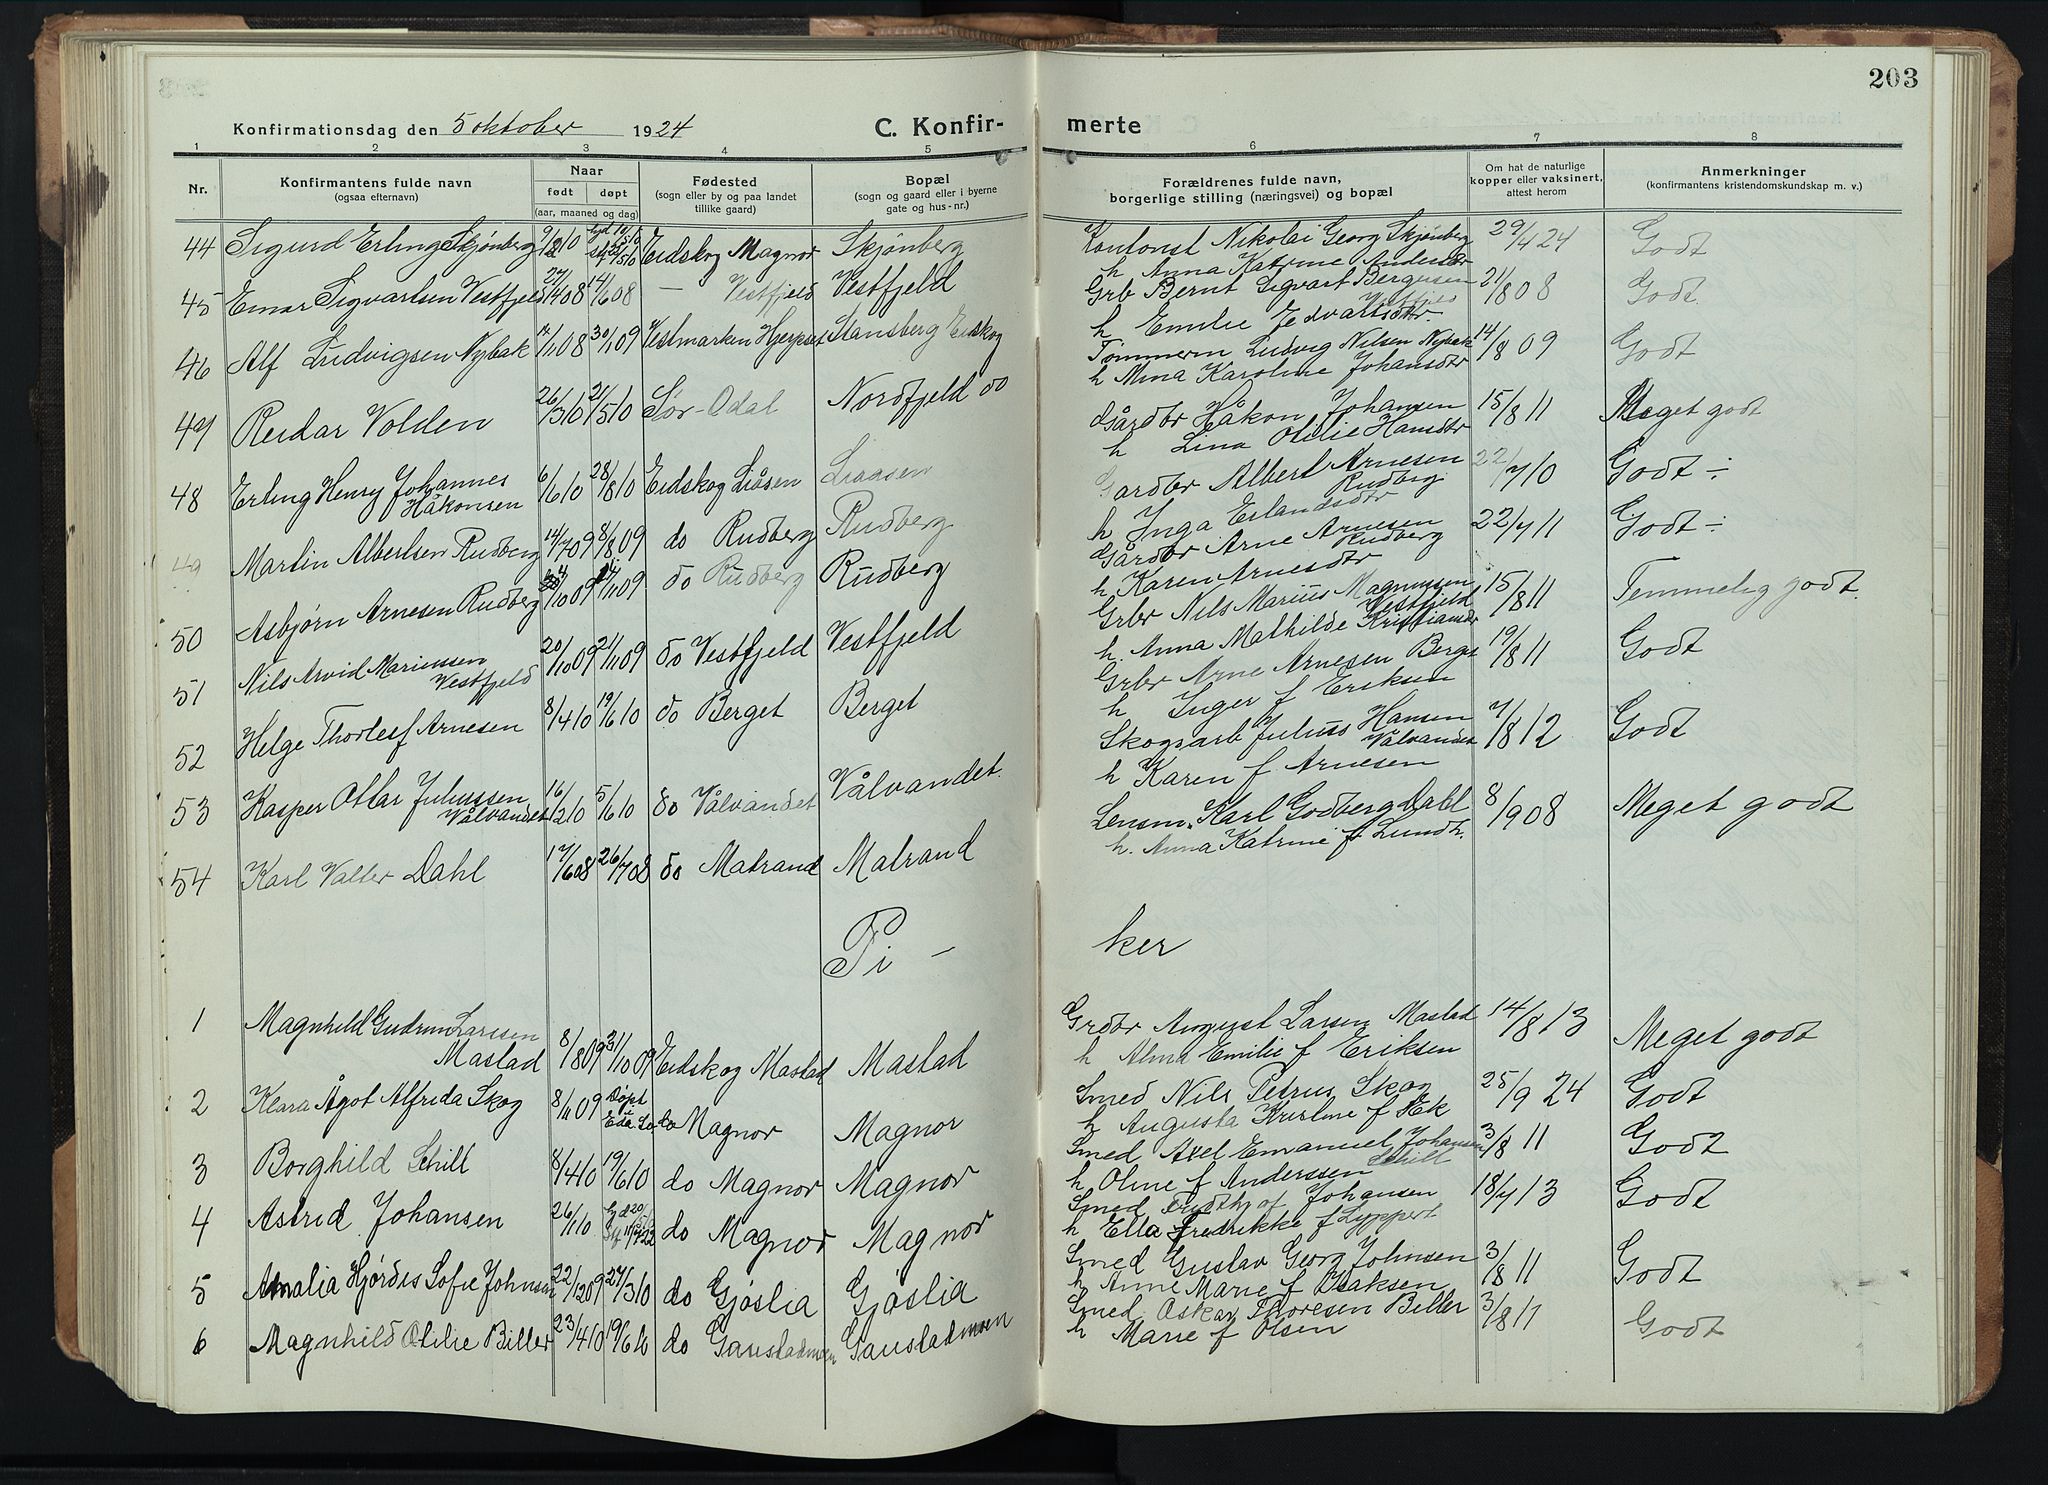 203
Konfirmationsdag den 5 oktober 1924 C. Konfir- merte
1 2 3 4 5 6 7 8
Nr. Konfirmantens fulde navn (ogsaa efternavn) Naar født døpt (aar, maaned og dag) Fødested (sogn eller by og paa landet tillike gaard) Bopæl (sogn og gaard eller i byerne gate og hus-nr.) Forældrenes fulde navn, borgerlige stilling (næringsvei) og bopæl Om hat de naturlige kopper eller vaksinert, attest herom Anmerkninger (konfirmantens kristendomskundskap m. v.)
44 Sigurd Erling Skjønberg 9/2 10 Eidskog Magnor Skjønberg Kontorist Nikolai Georg Skjønberg 29/4 24 Godt
h Anna Katrine Andersdr
45 Einar Sigvartsen Vestfjeld 27/4 08 14/6 08 — Vestfjeld Vestfjeld Grb Bernt Sigvart Bergersen Vestfjeld 21/8 08 Godt
h Emilie Edvartsdr.
46 Alf Ludvigsen Nybak 17/11 08 30/1 09 Vestmarken Hjerpset Stansberg Eidskog Tømmerm Ludvig Nilsen Nybak 14/8 09 Godt
h Mina Karoline Johansdtr
47 Reidar Volden 26/3 10 21/5 10 Sør-Odal Nordfjeld do
48 Erling Henry Johannes Håkonsen 6/6 10 28/8 10 Eidskog Liåsen Liaasen Gårdbr Håkon Johansen 15/8 11 Meget godt
h Lina Otilie Hansdtr
49 Martin Albertsen Rudberg 14/7 09 8/8 09 do Rudberg Rudberg Gardbr Albert Arnesen Rudberg 22/7 10 Godt ÷
h Inga Erlandsdtr
50 Asbjørn Arnesen Rudberg /10 09 /11 09 do Rudberg Rudberg Gårdbr Arne Arnesen Rudberg 22/7 11 Godt ÷
h Karen Arnesdtr
51 Nils Arvid Mariussen Vestfjeld 20/10 09 21/11 09 do Vestfjeld Vestfjeld Grbr Nils Marius Magnussen Vestfjeld 15/8 11 Temmelig godt.
h. Anna Mathilde Kristiansdr
52 Helge Thorleif Arnesen 8/4 10 19/6 10 do Berget Berget Grbr Arne Arnesen Berget 19/8 11 Godt
h Inger f Eriksen
53 Kasper Ottar Juliussen Vålvandet 16/2 10 5/6 10 do Vålvandet Vålvandet. Skogsarb Julius Hansen Vålvandet 7/8 12 Godt
h Karen f. Arnesen
54 Karl Valter Dahl 17/6 08 26/7 08 do Matrand Matrand Lensm. Karl Godberg Dahl 8/9 08 Meget godt
h. Anna Katrine f. Lundh.
Pi - ker
1 Magnhild Gudrun Larsen Mastad 8/8 09 31/10 09 Eidskog Mastad Mastad Grdbr August Larsen Mastad 14/8 13 Meget godt
h Alma Emilie f Eriksen
2 Klara Ågot Alfrida Skog 8/11 09 Døpt i Eda do Magnor Magnor Smed Nils Petrus Skog 25/9 24 Godt
h Augusta Kristine f Ek
3 Borghild Schill 8/4 10 19/6 10 do Magnor Magnor Smed Axel Emanuel Johansen Schill 3/8 11 Godt
h Oline f Anderssen
4 Astrid Johansen 26/1 10 do Magnor Magnor Smed Fridthjof Johansen 18/7 13 Godt
h Ella Fredrikke f Lyppert
5 Amalia Hjørdis Sofie Johnsen 22/12 09 27/3 10 do Gjøslia Gjøslia Smed Gustav Georg Johnsen 3/8 11 Godt
h Anne Marie f Isaksen
6 Magnhild Otilie Biller 23/4 10 19/6 10 do Gaustadmoen Gaustadmoen Smed Oskar Thoresen Biller 3/8 11 Godt
h Marie f Olsen